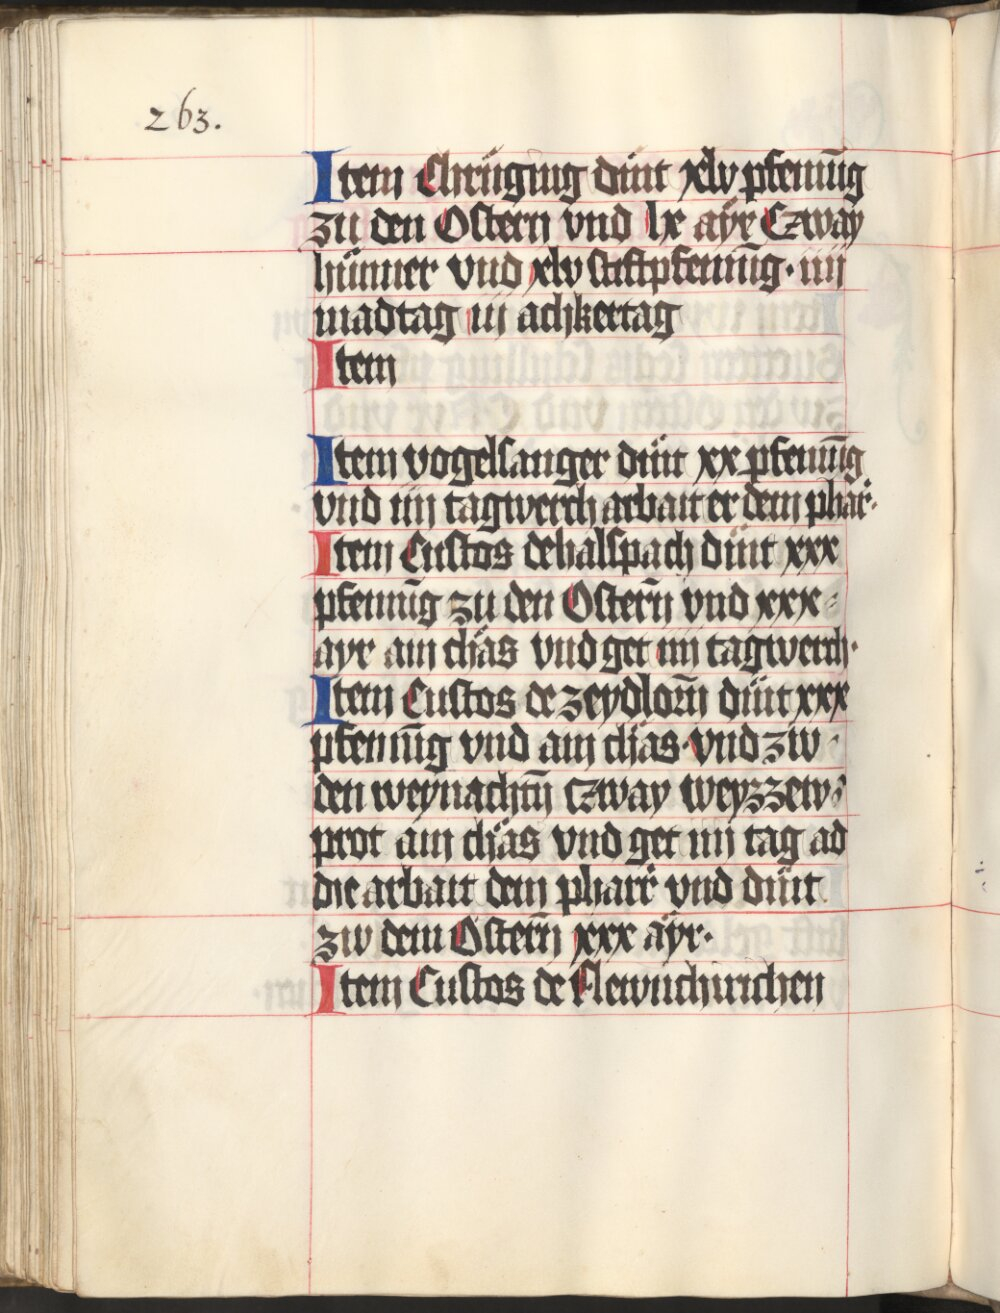 263.
Item Chrüging dint xlv pfenni̅g
zu den Ostern vnd lx ayr Czway
hünner vnd xlv stiftpfenni̅g · iiij
madtag iij achkertag
Item
Item vogelsanger dint xx pfenni̅g
vnd iiij tagwerch arbait er dem pharr·
Item Custos dehalspach dint xxx
pfenni̅g zu den Oster̅n vnd xxx
ayr ain chäs vnd get iiij tagwerch·
Item Custos de zeydlor̅n dint xxx
pfenni̅g vnd ain chäs · vnd zw
den weynacht̅n Czway weyzzew
prot ain chäs vnd get iiij tag ad
die arbait dem pharr vnd dint
zw dem Oster̅n xxx äyr·
Item Custos de Newnchirichen